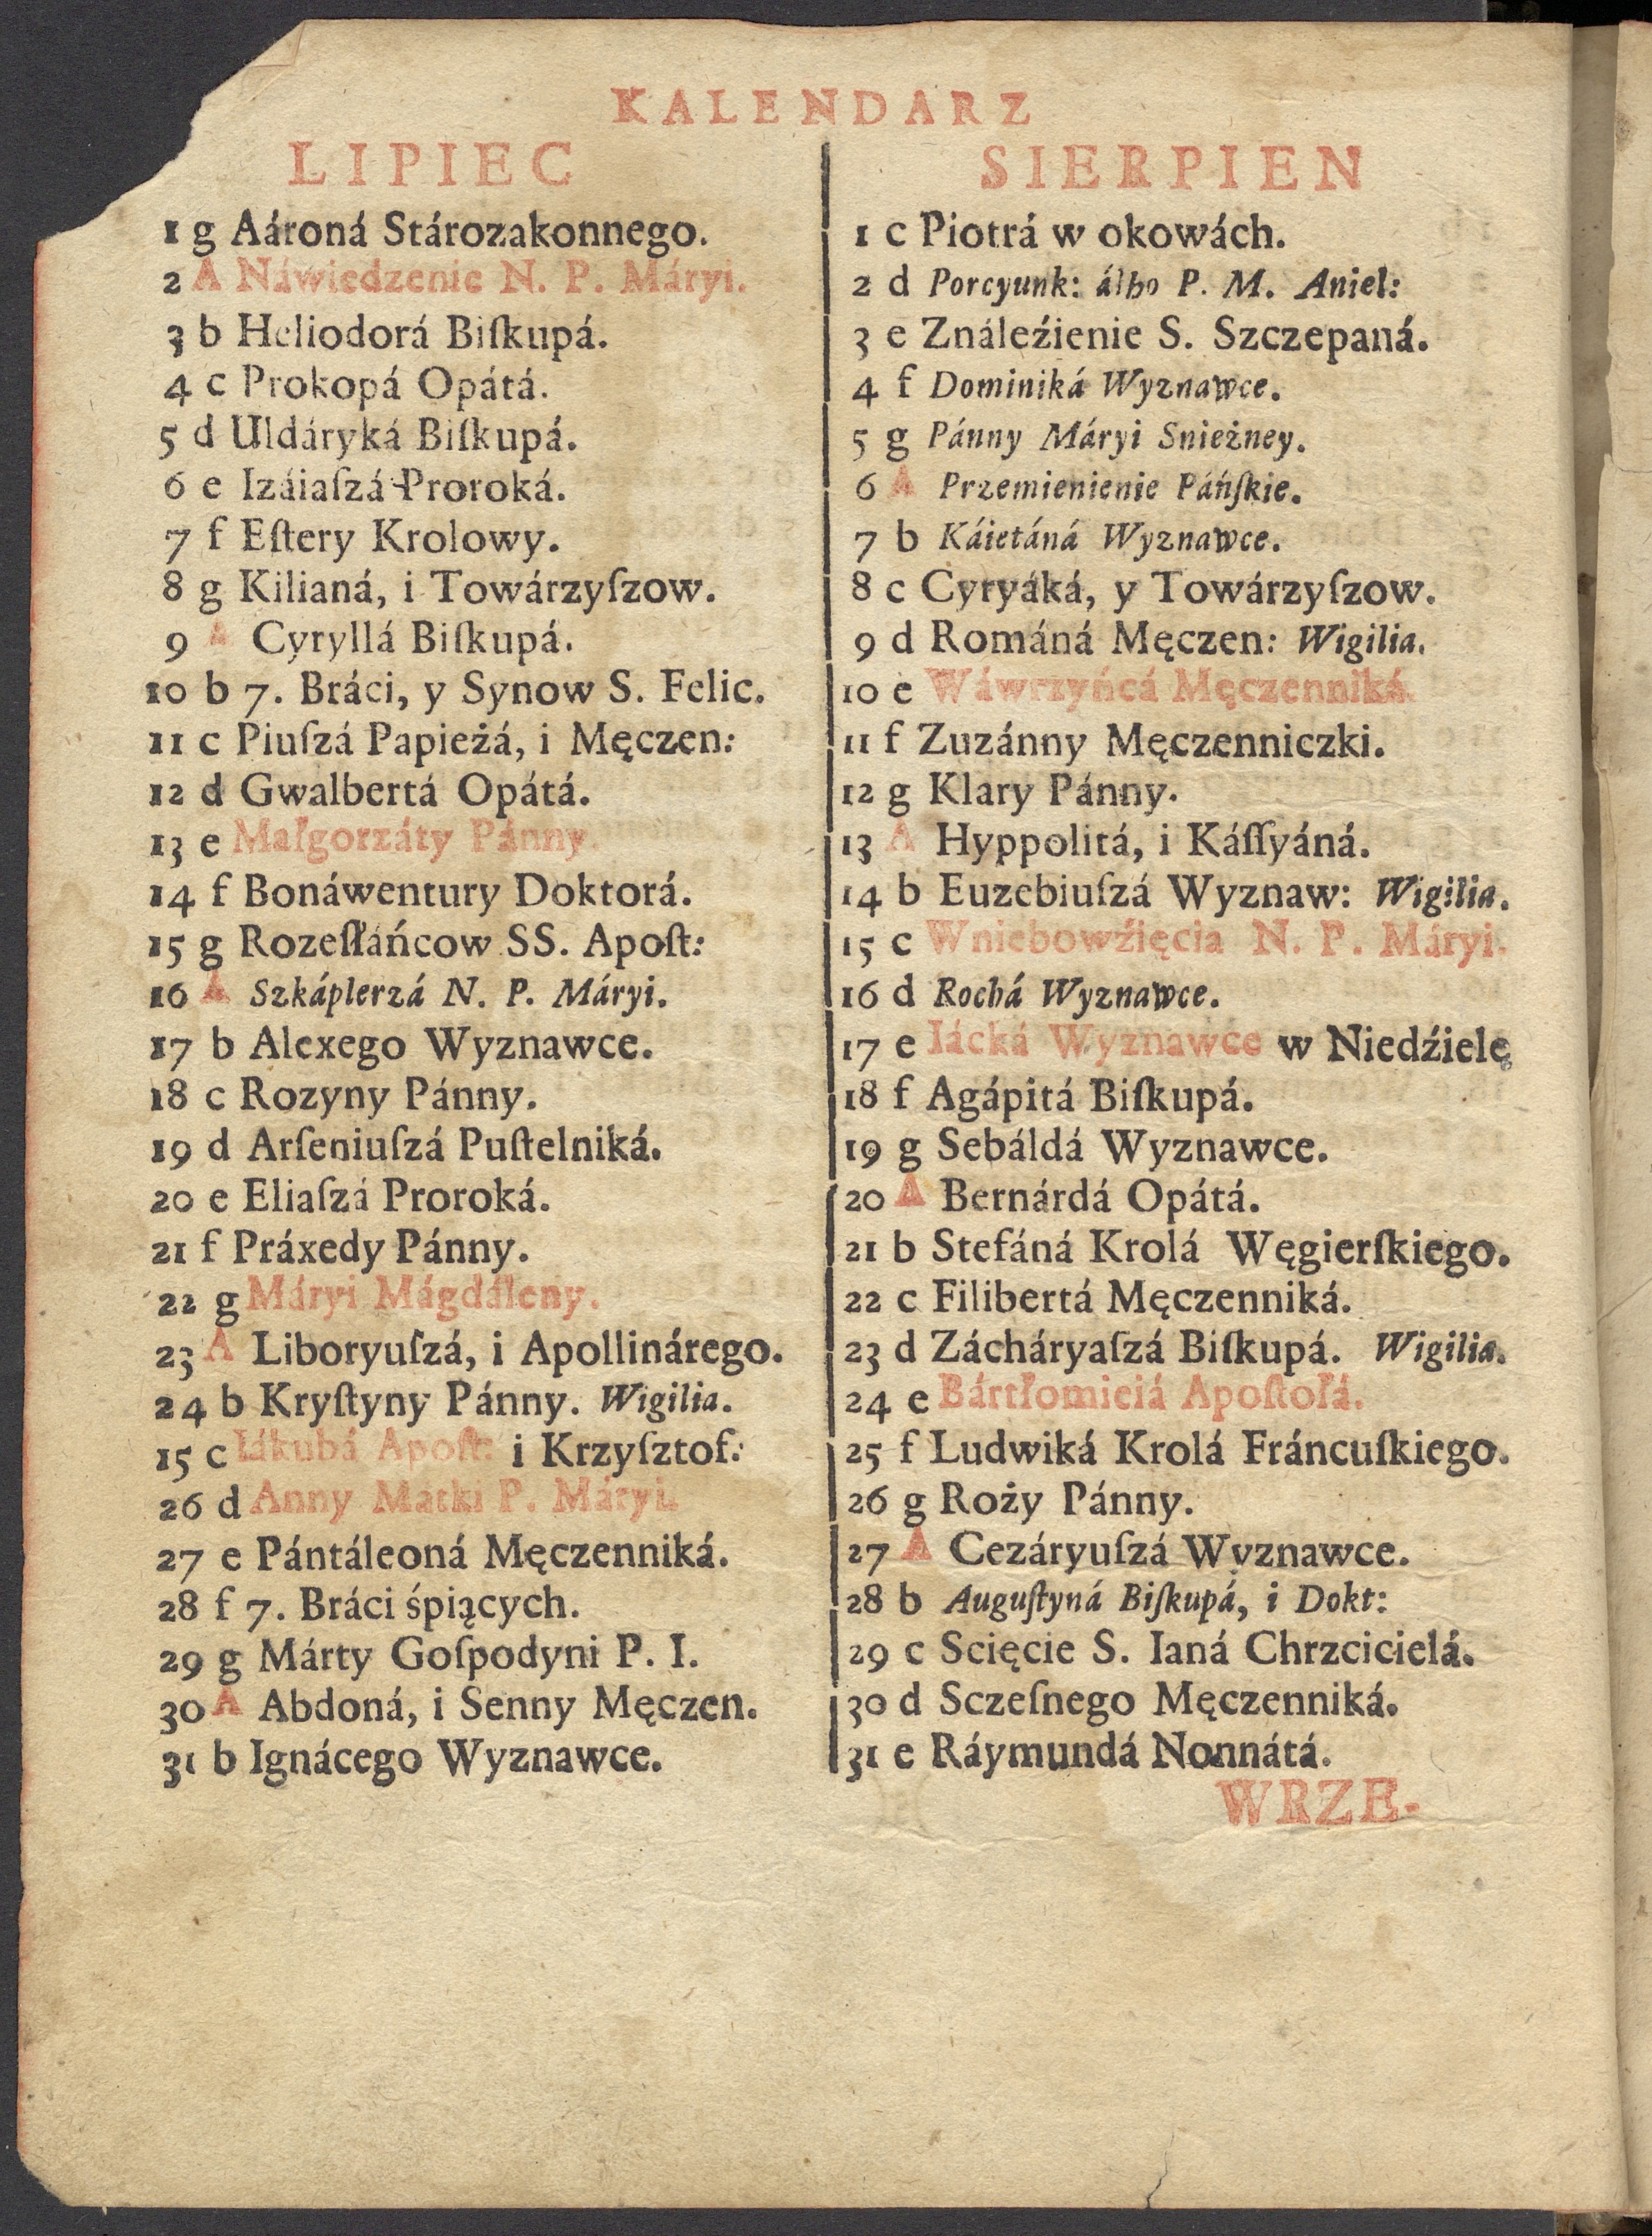 KALENDARZ
LIPIEC
1 g Aároná Stározakonnego.
2 A Náwiedzenie N. P. Máryi.
3 b Heliodorá Biſkupá.
4 c Prokopá Opátá.
5 d Uldáryká Biſkupá.
6 e Izáiaſzá Proroká.
7 f Eſtery Krolowy.
8 g Kilianá, i Towárzyſzow.
9 A Cyryllá Biſkupá.
10 b 7. Bráci, y Synow S. Felic.
11 c Piuſzá Papieżá, i Męczen:
12 d Gwalbertá Opátá.
13 e Małgorzáty Pánny.
14 f Bonáwentury Doktorá.
15 g Rozeſłáńcow SS. Apoſt:
16 A Szkáplerzá N. P. Máryi.
17 b Alexego Wyznawce.
18 c Rozyny Pánny.
19 d Arſeniuſzá Puſtelniká.
20 e Eliaſzá Proroká.
21 f Práxedy Pánny.
22 g Máryi Mágdáleny.
23 A Liboryuſzá, i Apollinárego.
24 b Kryſtyny Pánny. Wigilia.
15 c Iákubá Apoſt: i Krzyſztof:
26 d Anny Matki P. Máryi.
27 e Pántáleoná Męczenniká.
28 f 7. Bráci śpiących.
29 g Márty Goſpodyni P. I.
30 A Abdoná, i Senny Męczen.
31 b Ignácego Wyznawce.
SIERPIEN
1 c Piotrá w okowách.
2 d Porcyunk: álbo P. M. Aniel:
3 e Ználeźienie S. Szczepaná.
4 f Dominiká Wyznawce.
5 g Pánny Máryi Snieżney.
6 A Przemienienie Páńſkie.
7 b Káietáná Wyznawce.
8 c Cyryáká, y Towárzyſzow.
9 d Románá Męczen: Wigilia.
10 e Wáwrzyńcá Męczenniká.
11 f Zuzánny Męczenniczki.
12 g Klary Pánny.
13 A Hyppolitá, i Káſſyáná.
14 b Euzebiuſzá Wyznaw: Wigilia.
15 c Wniebowźięcia N. P. Máryi.
16 d Rochá Wyznawce.
17 e Iácká Wyznawce w Niedźielę
18 f Agápitá Biſkupá.
19 g Sebáldá Wyznawce.
20 A Bernárdá Opátá.
21 b Stefáná Krolá Węgierſkiego.
22 c Filibertá Męczenniká.
23 d Zácháryaſzá Biſkupá. Wigilia.
24 e Bártłomieiá Apoſtołá.
25 f Ludwiká Krolá Fráncuſkiego.
26 g Roży Pánny.
27 A Cezáryuſzá Wyznawce.
28 b Auguſtyná Biſkupá, i Dokt:
29 c Scięcie S. Ianá Chrzcicielá.
30 d Sczeſnego Męczenniká.
31 e Ráymundá Nonnátá.
WRZE-